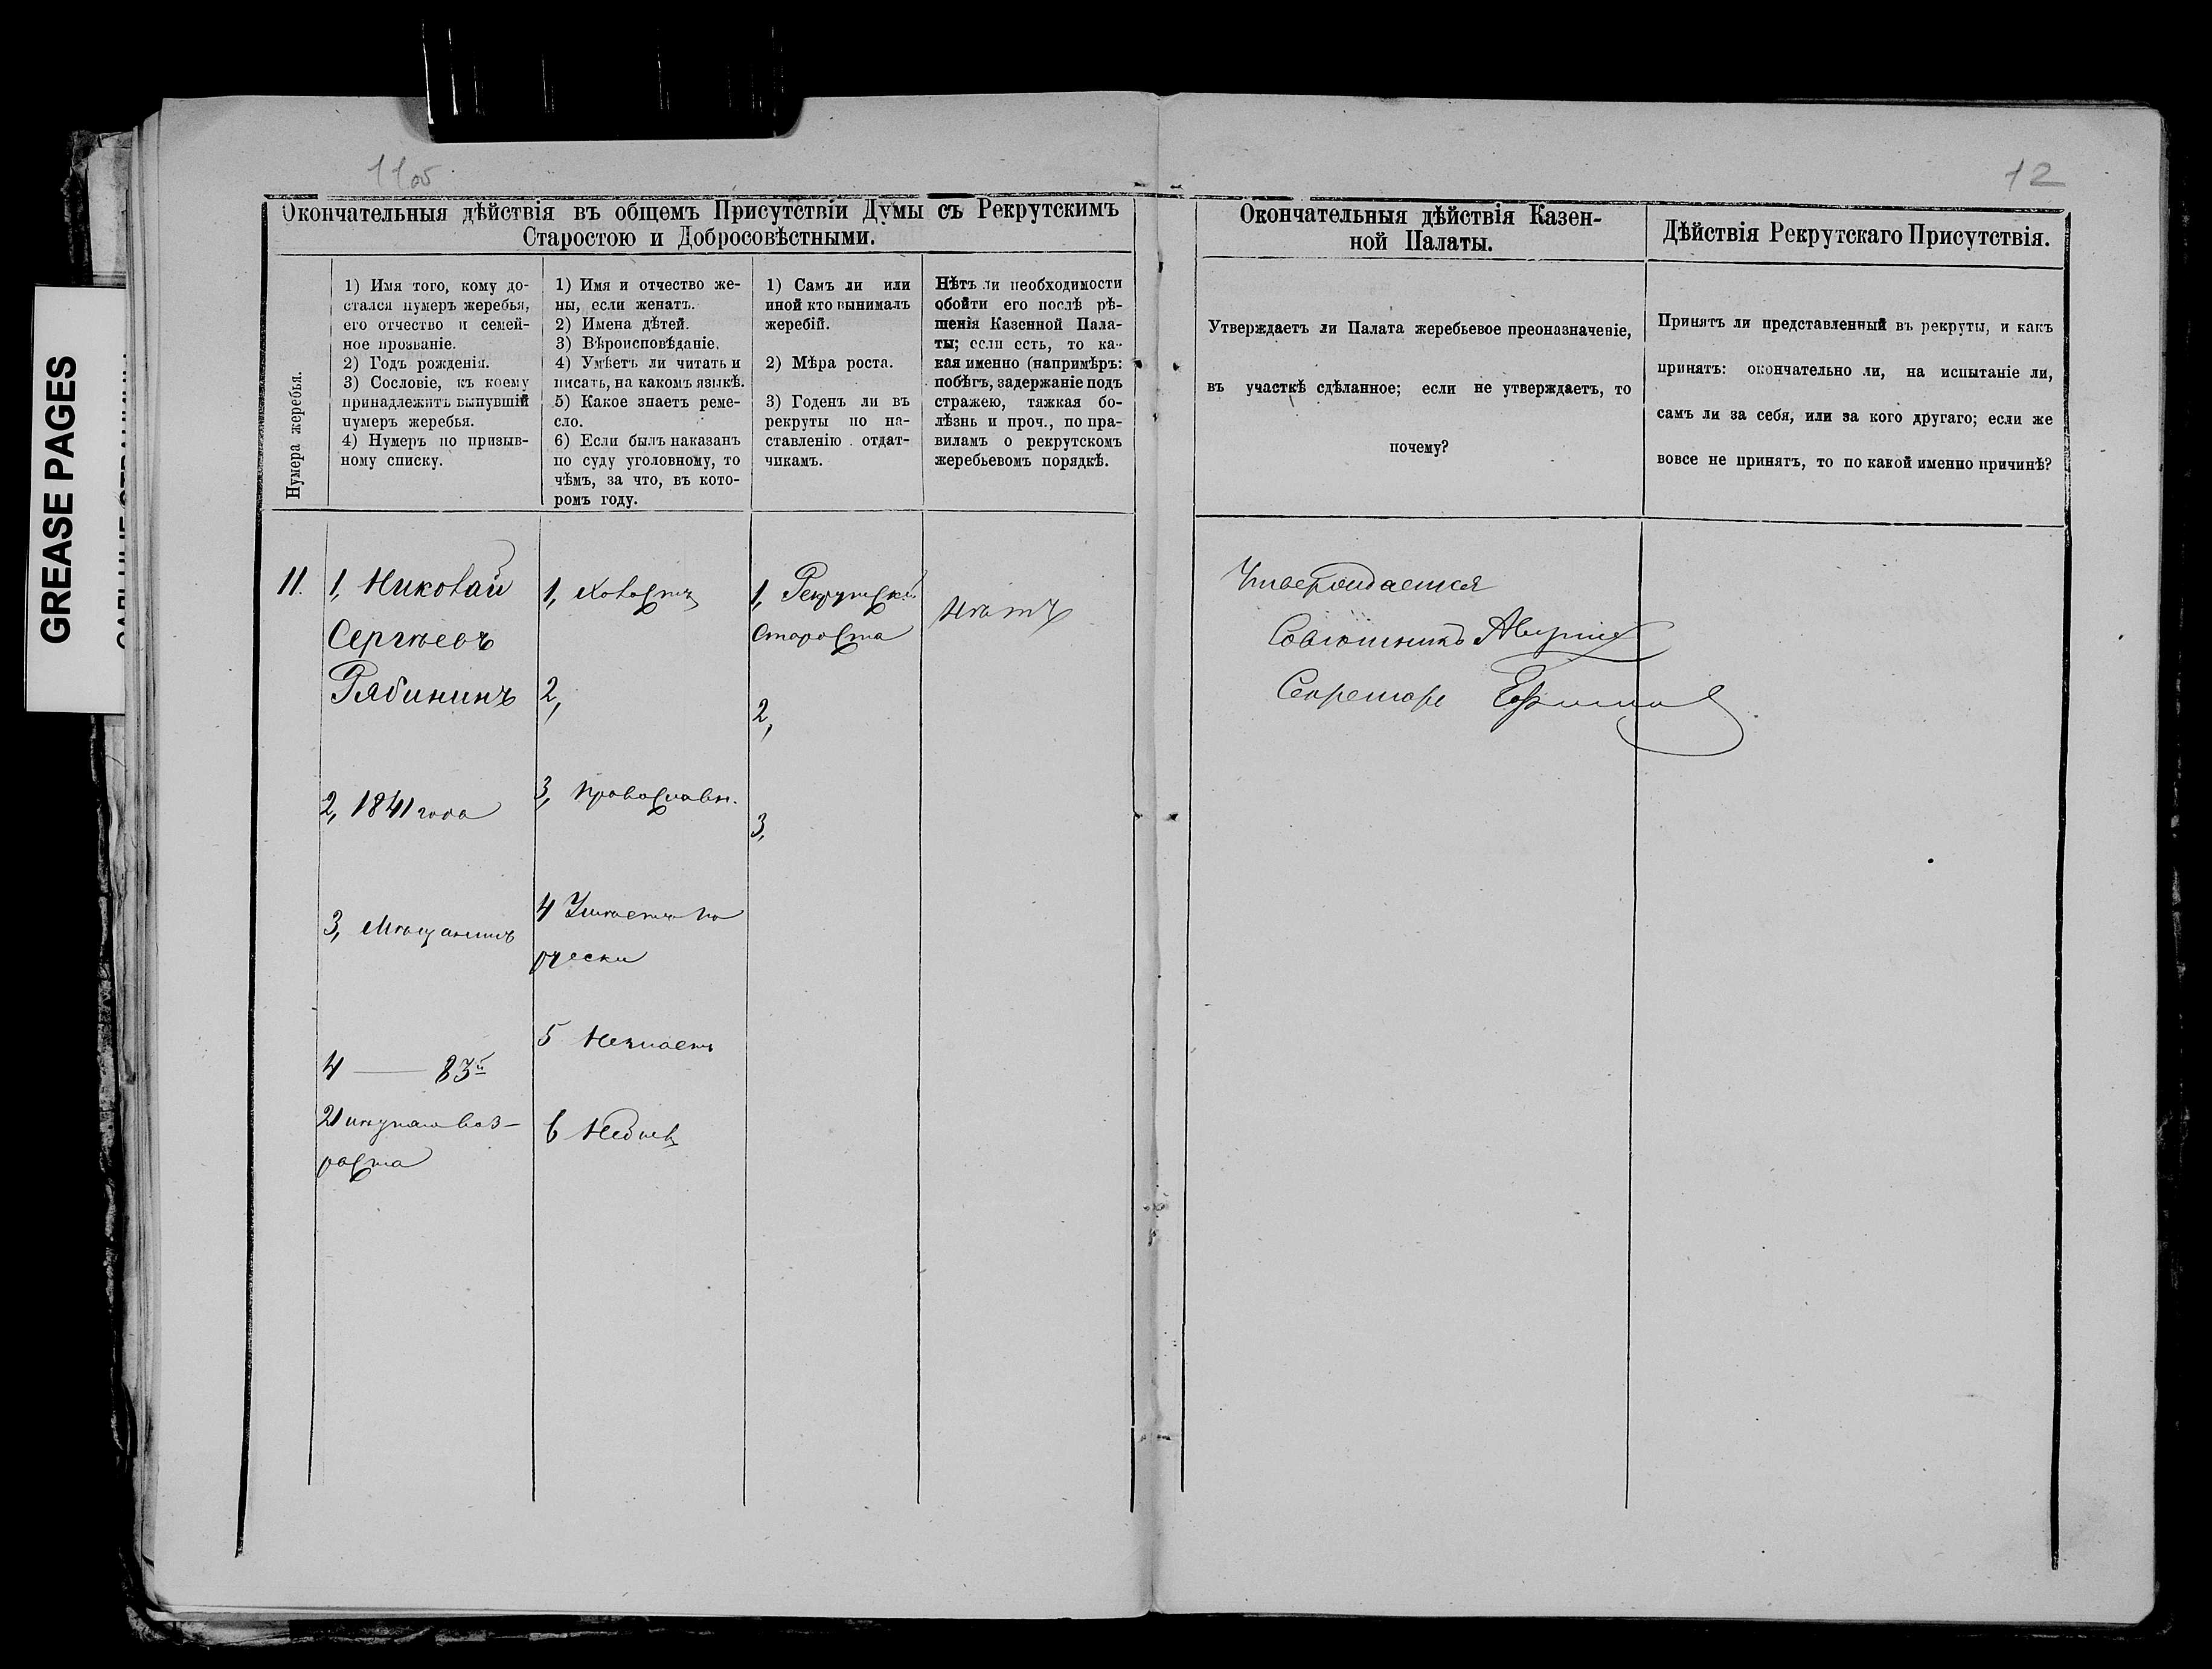 GREASE PAGES
11об
12
Окончательныя дѣйствія въ общемъ Присутствіи Думы съ Рекрутскимъ
Старостою и Добросовѣстными.
Нумера жеребья.
1) Имя того, кому до-
стался нумеръ жеребья,
его отчество и семей-
ное прозваніе.
2) Годъ рожденія.
3) Сословіе, къ коему
принадлежитъ вынувшій
нумеръ жеребья.
4) Нумеръ по призыв-
ному списку.
1) Имя и отчество же-
ны, если женатъ.
2) Имена дѣтей.
3) Вѣроисповѣданіе.
4) Умѣетъ ли читать и
писать, на какомъ языкѣ.
5) Какое знаетъ реме-
сло.
6) Если былъ наказанъ
по суду уголовному, то
чѣмъ, за что, въ кото-
ромъ году.
1) Самъ ли или
иной кто вынималъ
жеребій.
2) Мѣра роста.
3) Годенъ ли въ
рекруты по на-
ставленію отдат-
чикамъ.
Нѣтъ ли необходимости
обойти его послѣ рѣ-
шенія Казенной Пала-
ты; если есть, то ка-
кая именно (напримѣръ:
побѣгъ, задержаніе подъ
стражею, тяжкая бо-
лѣзнь и проч., по пра-
виламъ о рекрутскомъ
жеребьевомъ порядкѣ.
Окончательныя дѣйствія Казен-
ной Палаты.
Утверждаетъ ли Палата жеребьевое преоназначеніе,
въ участкѣ сдѣланное; если не утверждаетъ, то
почему?
Дѣйствія Рекрутскаго Присутствія.
Принятъ ли представленный въ рекруты, и какъ
принятъ: окончательно ли, на испытаніе ли,
самъ ли за себя, или за кого другаго; если же
вовсе не принятъ, то по какой именно причинѣ?
11.
1, Николай
Сергѣевъ
Рябининъ
2, 1841 года
3, Мѣщанинъ
4 — 83й
21 возраста
1, Холостъ
2,
3, православн.
4 Умѣетъ по
русски
5 Незнаетъ
6 Небылъ
1, Рекрутскій
Староста
2,
3,
нѣтъ
Утверждается
Совѣтникъ
Секретарь